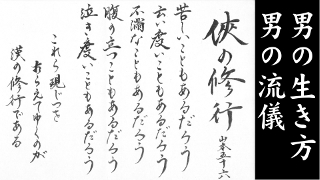 男の生き方
男の流儀
俠の修行
山本五十六
苦しいこともあるだろう
云い度いこともあるだろう
不満なこともあるだろう
腹の立つこともあるだろう
泣き度いこともあるだろう
これらをじつと
こらえてゆくのが
漢の修行である